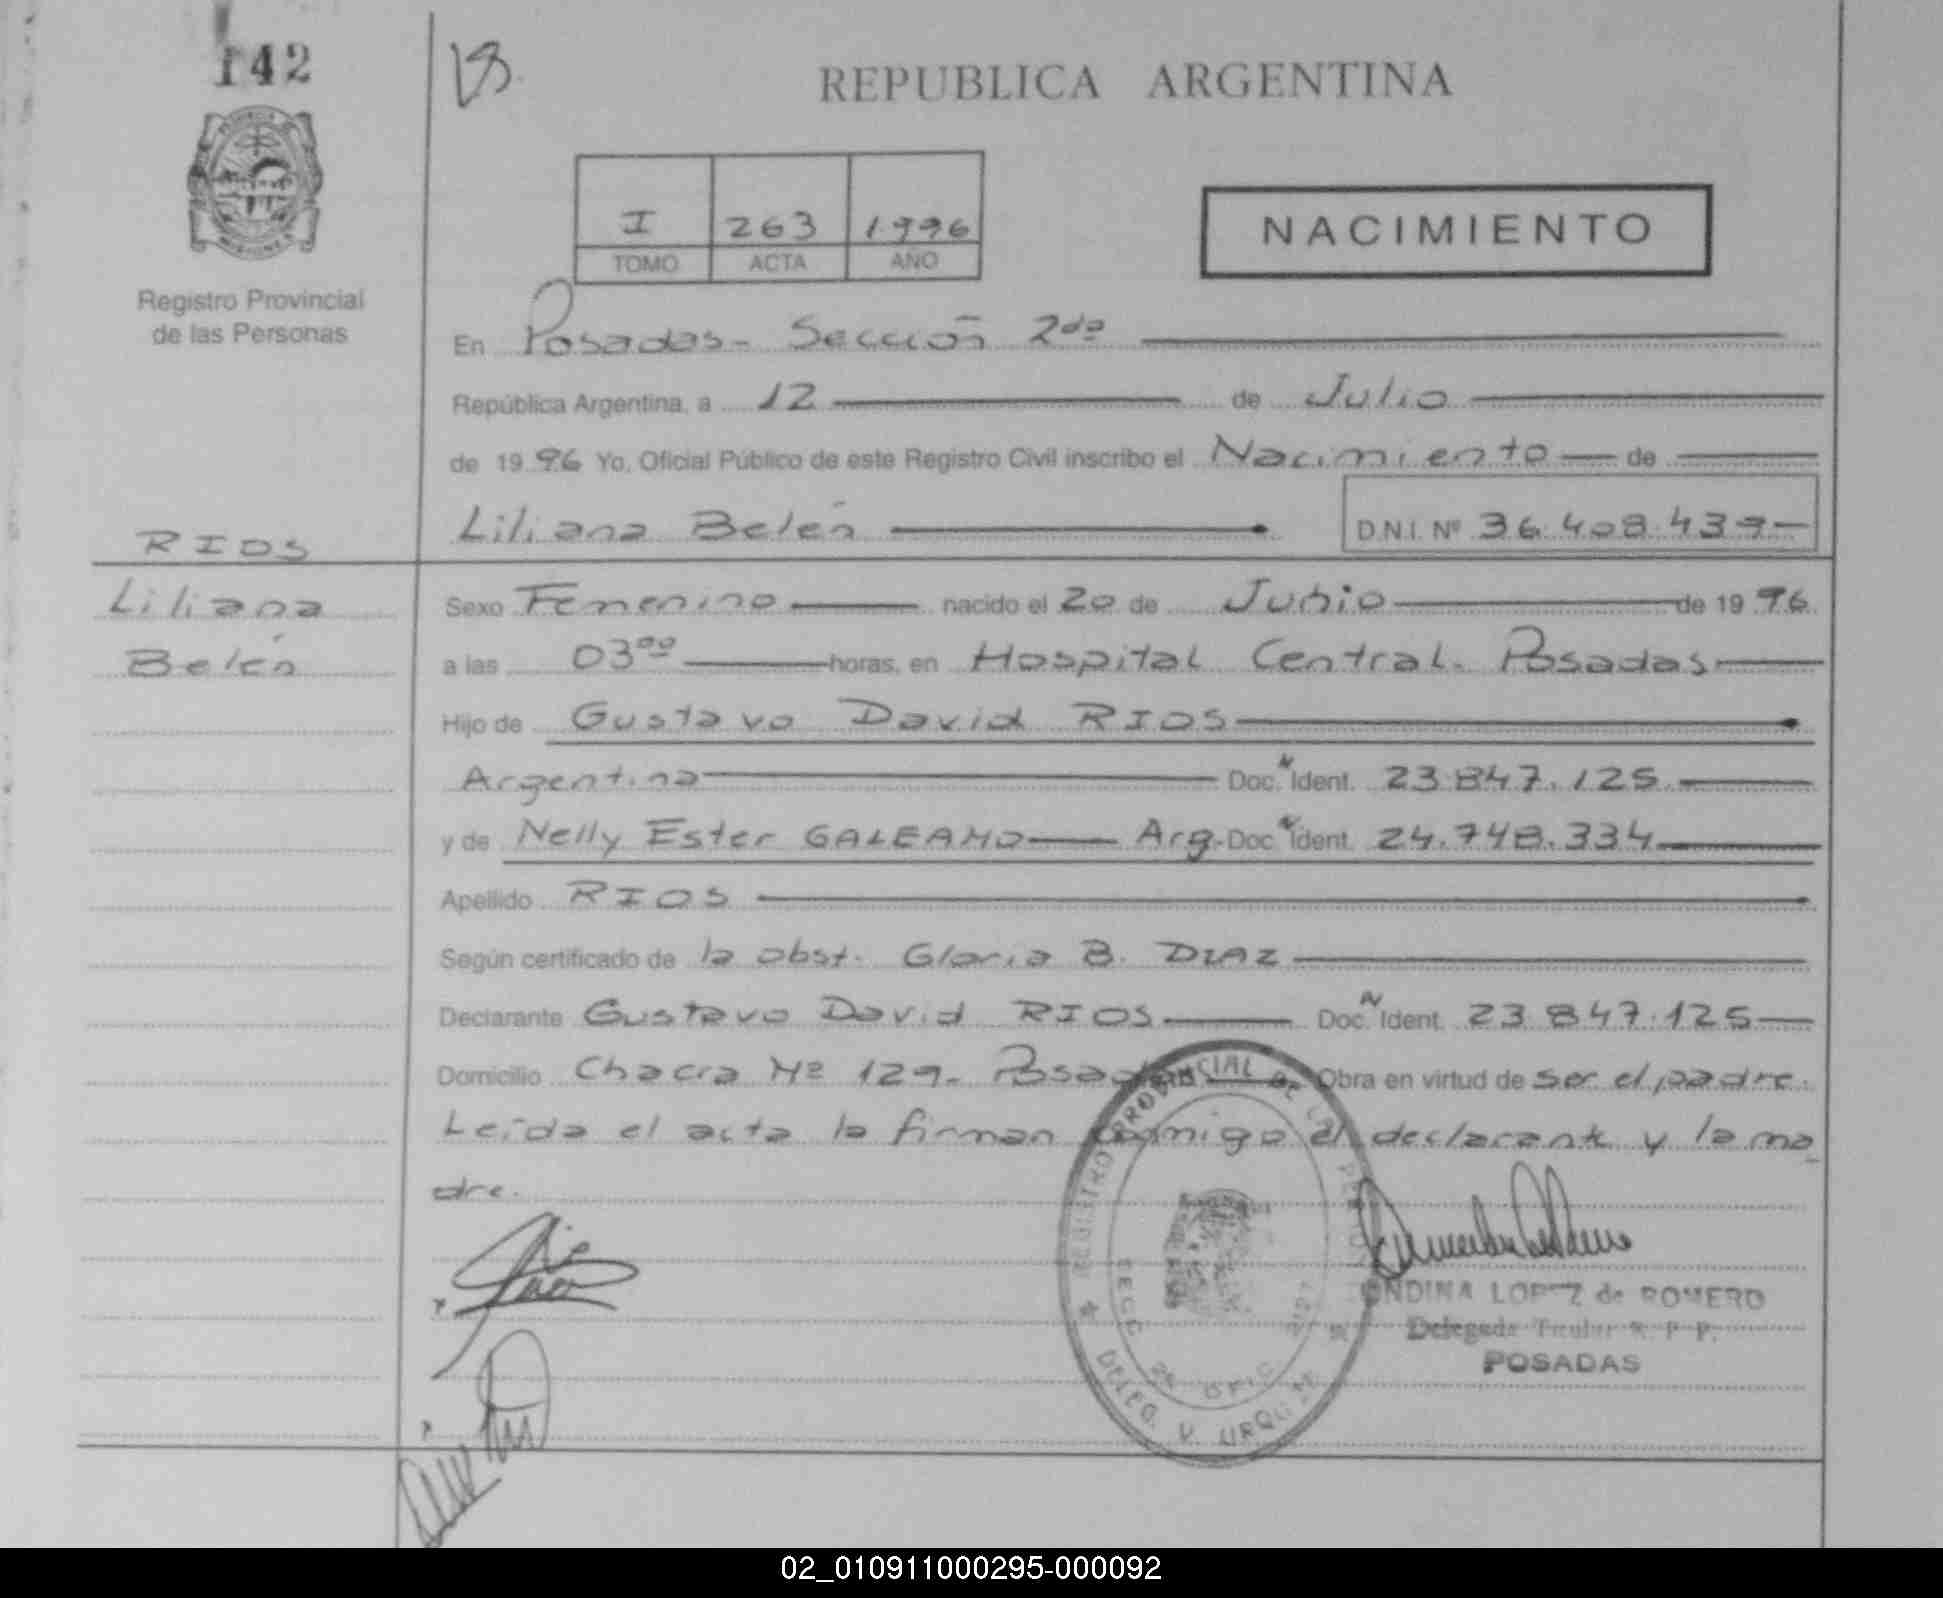 142
REPUBLICA ARGENTINA
I 263 1996
TOMO ACTA AÑO
NACIMIENTO
Registro Provincial
de las Personas
En Posadas - Sección 2da
República Argentina, a 12 de Julio
de 1996 Yo, Oficial Público de este Registro Civil inscribo el Nacimiento de
Liliana Belén D.N.I. Nº 36.408.439-
RIOS
Liliana
Belén
Sexo Femenino nacido el 20 de Junio de 1996
a las 03ºº horas, en Hospital Central. Posadas
Hijo de Gustavo David RIOS
Argentina Doc. N Ident. 23.847.125
y de Nelly Ester GALEANO Arg. Doc. N Ident. 24.748.334
Apellido RIOS
Según certificado de la obst. Gloria B. DIAZ
Declarante Gustavo David RIOS Doc. N Ident. 23.847.125
Domicilio Chacra Nº 129. Posadas Obra en virtud de ser el padre.
Leída el acta la firman conmigo el declarante y la ma_
dre.
REGISTRO PROVINCIAL DE
SECC 2A OFIC
DELEG. V. URQUIZA
ONDINA LOPEZ de ROMERO
Delegada Titular R. P. P.
POSADAS
02_010911000295-000092